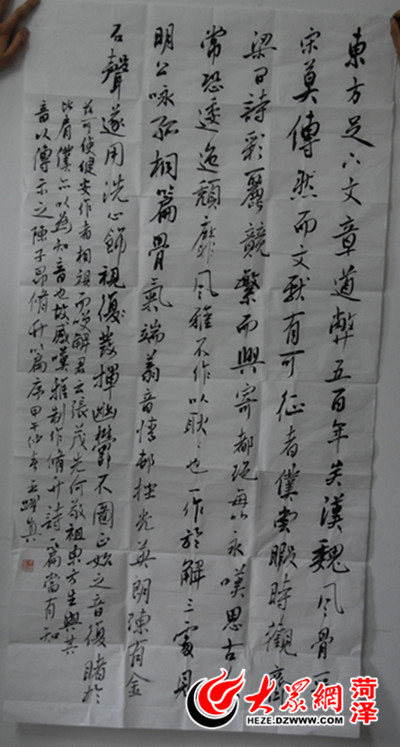 東方足下文章道弊五百年矣漢魏風骨晉
宋莫傳然而文獻有可征者僕嘗暇時觀齊
梁間詩彩麗競繁而興寄都絕每以永嘆思古
常恐逶迤頹靡風雅不作以耿々也一作於解三處見
明公咏孤桐篇骨氣端翔音情頓挫光英朗練有金
石聲遂用洗心飾視發揮幽鬱不圖正始之音復睹於
茲可使健安作者相視而笑解君云張茂先何敬祖東方生與其
比肩僕亦以為知音也故感嘆雅制作脩竹詩一篇當有知
音以傳示之陳子昂脩竹篇序甲午仲春
大众網 菏泽
HEZE.DZWWW.COM